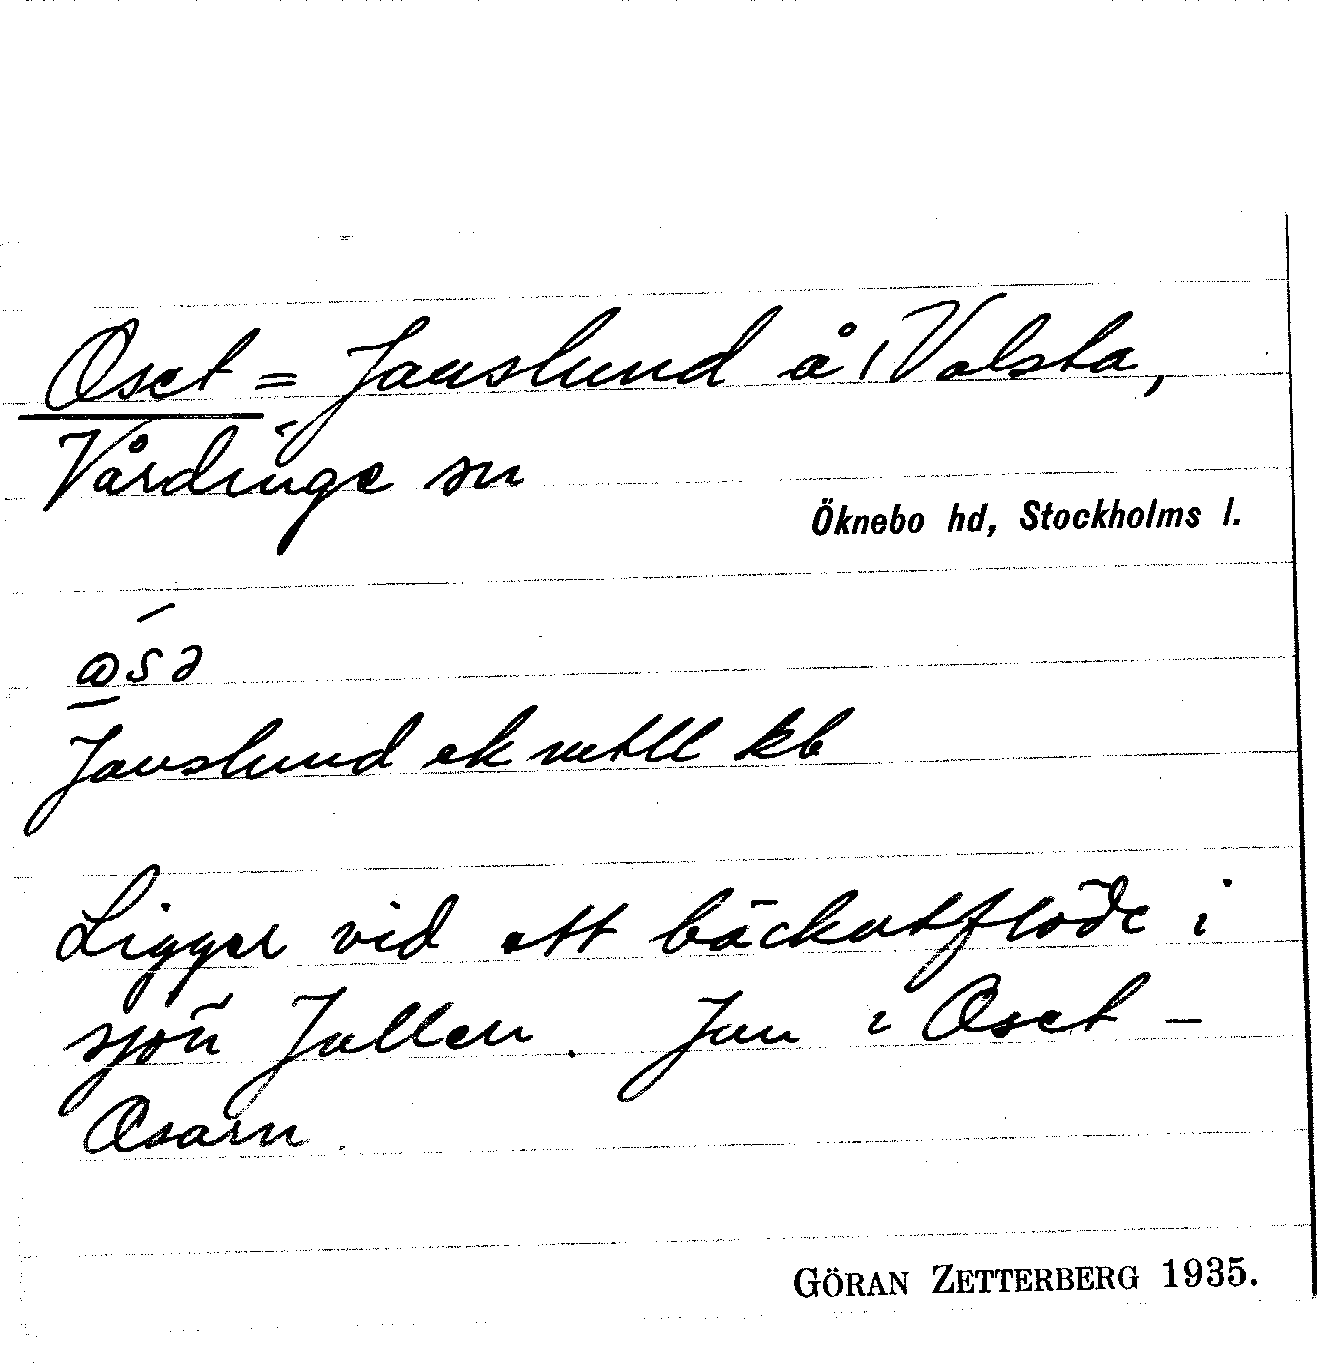 Oset = Janslund å Valsta,
Vårdinge sn
Öknebo hd, Stockholms l.
Janslund ek kb
Ligger vid ett bäckutflöde i
sjön Jullen. Jan i Oset –
Osarn.
GÖRAN ZETTERBERG 1935.